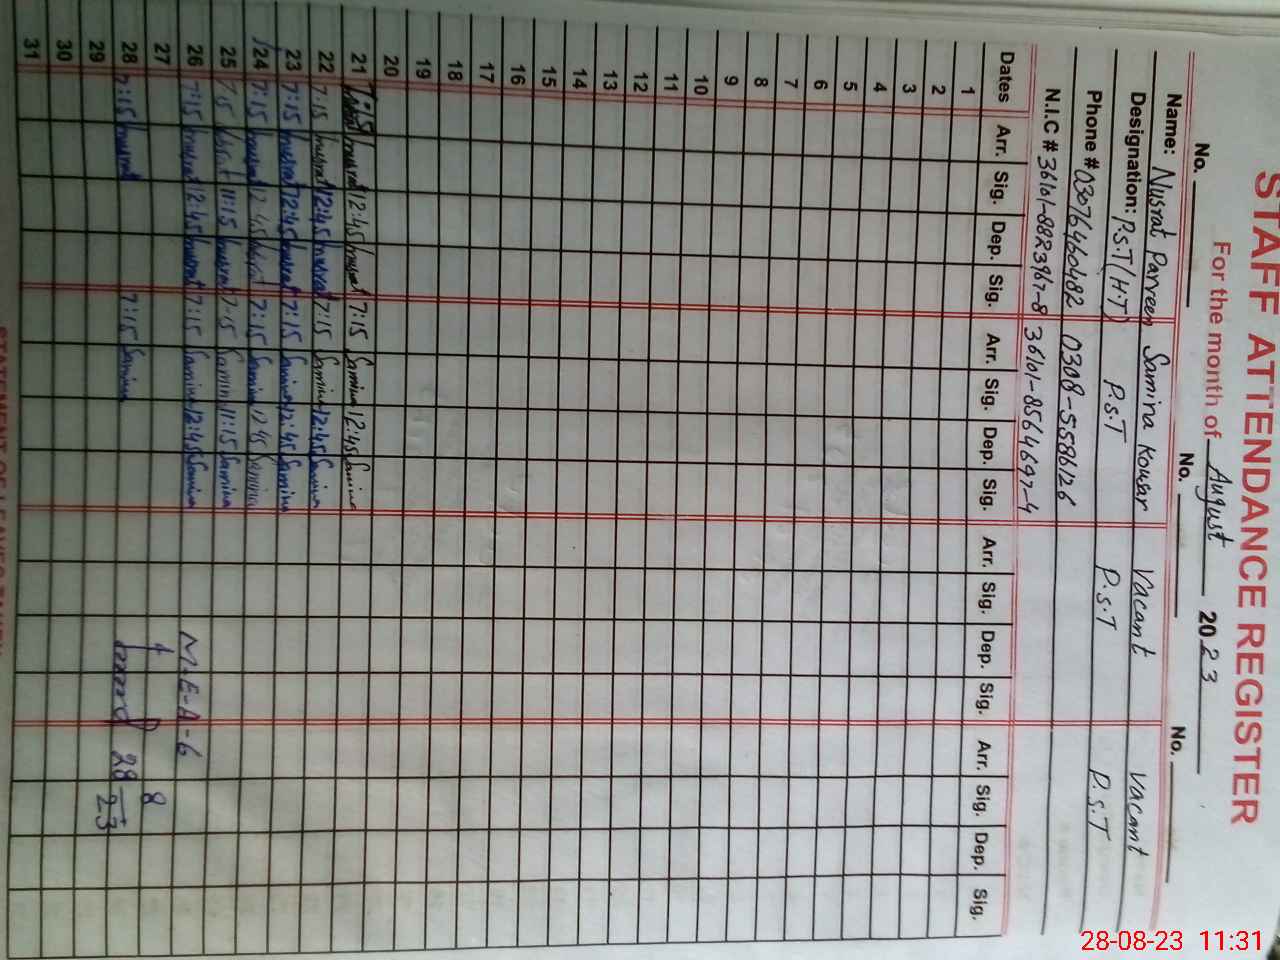 STAFF ATTENDANCE REGISTER
For the month of August 2023
No. No. No.
Name: Nusrat Parveen Samina Kousar Vacant Vacant
Designation: P.S.T(H.T) P.S.T P.S.T P.S.T
Phone # 03076460482 0308-5586126
N.I.C # 36101-8823967-8 36101-8564697-4
Dates Arr. Sig. Dep. Sig. Arr. Sig. Dep. Sig. Arr. Sig. Dep. Sig. Arr. Sig. Dep. Sig.
1
2
3
4
5
6
7
8
9
10
11
12
13
14
15
16
17
18
19
20
21 7:15 nusrat 12:45 nusrat 7:15 Samina 12:45 Samina
22 7:15 nusrat 12:45 nusrat 7:15 Samina 12:45 Samina
23 7:15 nusrat 12:45 nusrat 7:15 Samina 12:45 Samina
24 7:15 nusrat 12:45 nusrat 7:15 Samina 12 45 Samina
25 7 15 nusrat 11:15 nusrat 7-15 Samina 11:15 Samina
26 7:15 nusrat 12:45 nusrat 7:15 Samina 12:45 Samina M-E-A-6
27
28 7:15 nusrat 7:15 Samina 28 8
29 23
30
31
28-08-23 11:31